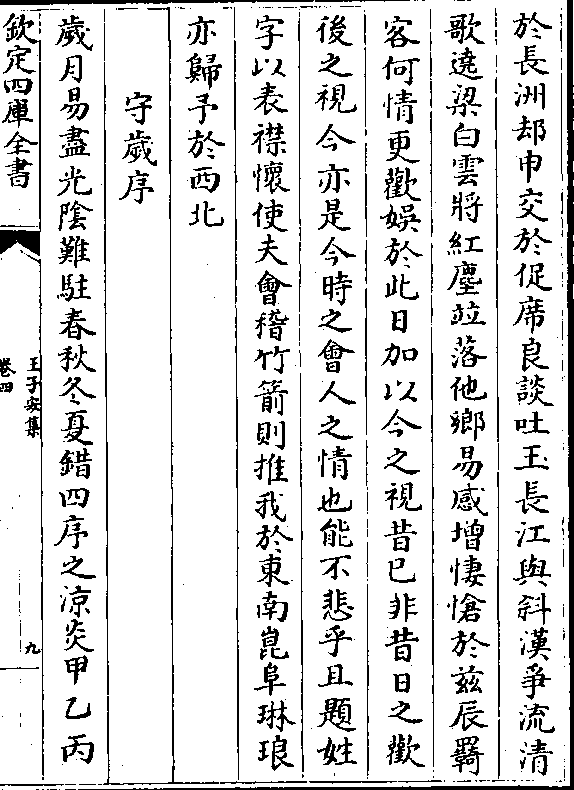 於長洲却申交於促席良談吐玉長江與斜漢爭流清
歌遶梁白雲將紅塵竝落他鄉易感增悽愴於兹辰羇
客何情更歡娛於此日加以今之視昔已非昔日之歡
後之視今亦是今時之會人之情也能不悲乎且題姓
字以表襟懷使夫會稽竹箭則推我於東南崑阜琳琅
亦歸予於西北
守歲序
歲月易盡光陰難駐春秋冬夏錯四序之涼炎甲乙丙
欽定四庫全書
王子安集
卷四
九